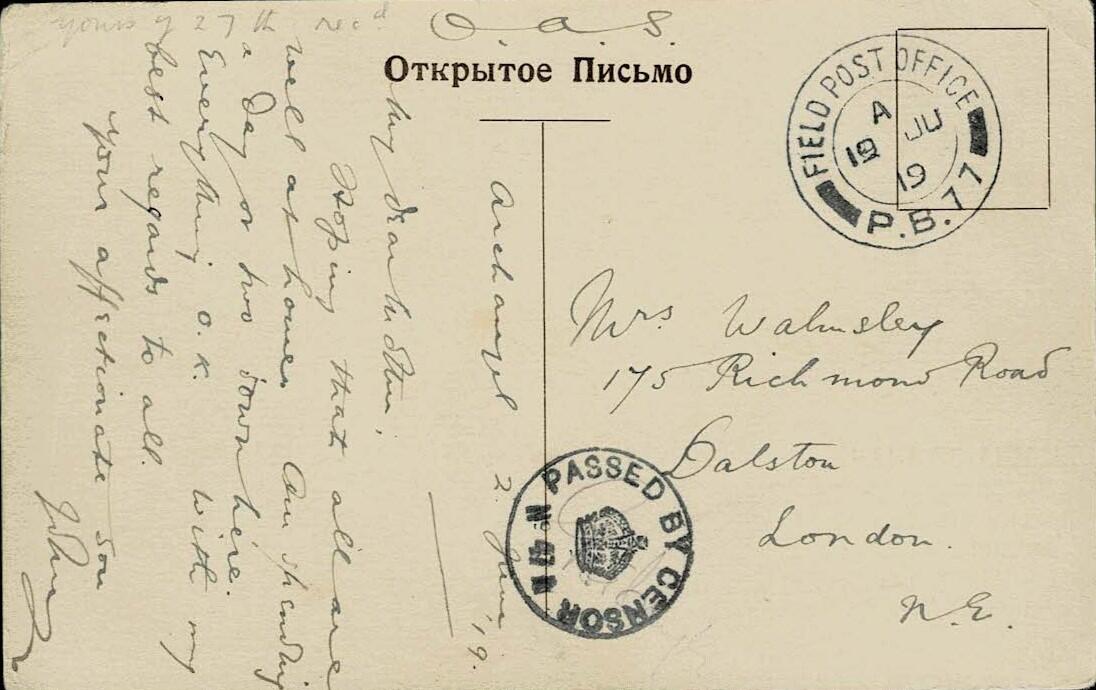 yours of 27th rec'd
O.A.S.
Открытое Письмо
FIELD POST OFFICE
A
JU
19
19
P.B. 77
Archangel 2 June '19.
My dear Mother,
Hoping that all are
well at home. Am spending
a day or two down here.
Everything o.k. With my
best regards to all.
your affectionate son
John
Mrs Walmsley
175 Richmond Road
Dalston
London.
N.E.
PASSED BY CENSOR